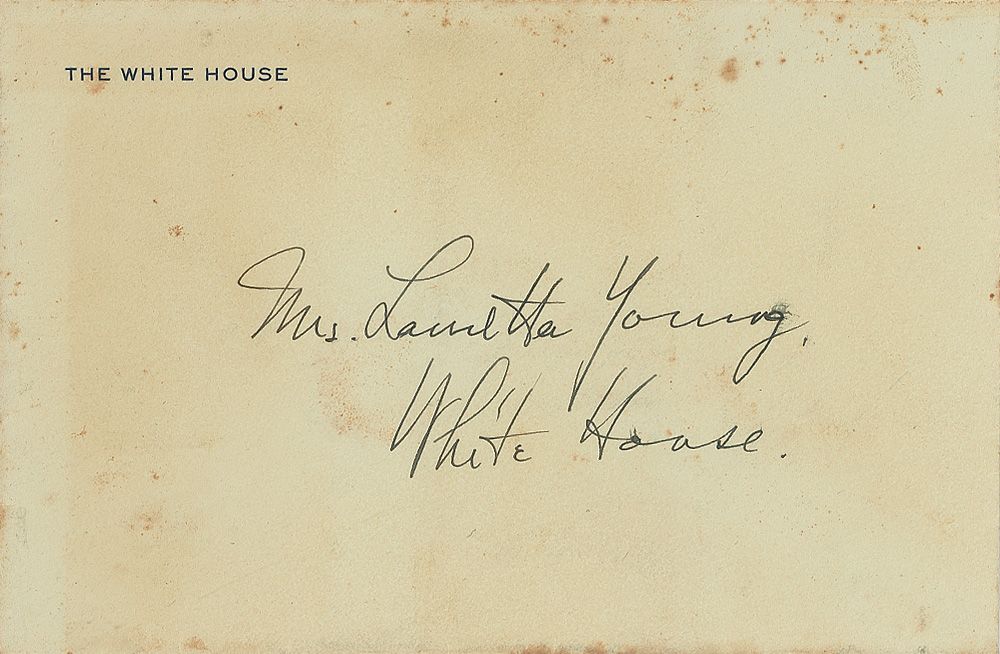 THE WHITE HOUSE
Mrs. Lauretta Young,
White House.